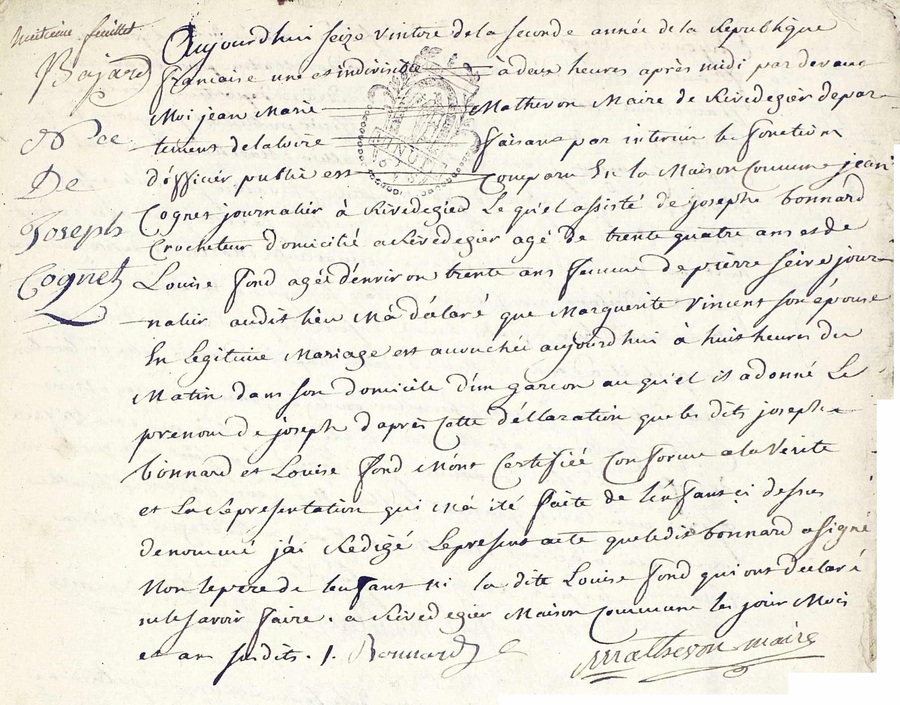 huitieme feuillet
Bajard
Nce
De
Joseph
Cognet
Aujourdhui seize vintose de la seconde année de la Republique
françaisse une et indivisible à deux heures après midi par devant
Moi jean Marie Mathevon Maire de Rivedegier depar-
tement de la loire faisant par interim les fonctions
d'officier public est Comparu En la Maison Commune jean
Cognet journalier à Rivedegied Le quel assisté de joseph bonnard
Crocheteur domicilié a Rivedegier agé de trente quatre ans et de
Louise fond agée d'environ trente ans femme de pierre Seive jour-
nalier audit lieu M'a déclaré que Marguerite Vincent son épouse
En legitime Mariage est accouchée aujourdhui à huit heures du
Matin dans son domicile d'un garcon auquel il a donné Le
prenom de joseph d'après Cette déclaration que les dits joseph
bonnard et Louise fond M'ont Certifiée Conforme a la Verité
et La Representation qui M'a été faite de l'enfant ci dessus
denommé j'ai Rédigé Le present acte que ledit bonnard a signé
Non le pere de l'enfant Ni la dite Louise fond qui ont declaré
ne le savoir faire. a Rivedegier Maison Commune les jour Mois
et an susdits. J. Bonnard
Mathevon maire